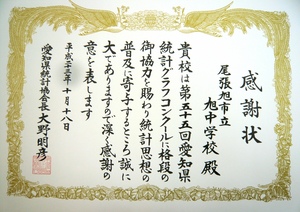 感謝状
尾張旭市立
旭中学校 殿
貴校は第五十五回愛知県
統計グラフコンクールに格段の
御協力を賜わり統計思想の
普及に寄与するところ誠に
大でありますので深く感謝の
意を表します
平成十六年十月十八日
愛知県統計協会長 大野明彦